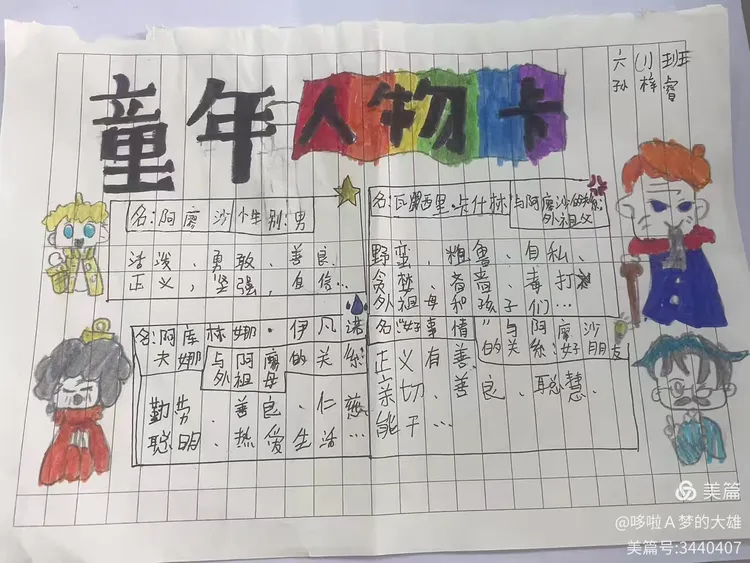 童年人物卡
六(1)班
孙梓睿
名:阿廖沙 性别:男
活泼、勇敢、善良
正义,坚强,自信…
名:瓦西里·卡什林 与阿廖沙的关系:
外祖父
野蛮、粗鲁、自私、
贪婪、吝啬、毒打
外祖母和孩子们…
名:阿库林娜·伊凡诺
夫娜 与阿廖的关系
外祖母
勤劳、善良、仁慈
聪明、热爱生活…
名:“好事情”与阿廖沙
的关系:好朋友
正义有善、
亲切、善良、聪慧、
能干…
美篇
@哆啦A梦的大雄
美篇号:3440407